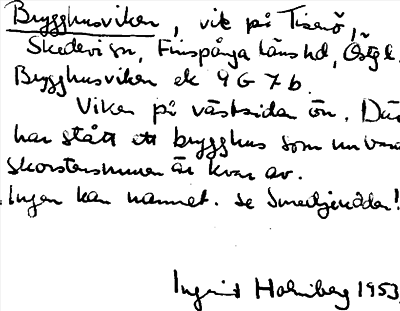 Brygghusviken, vik på Tisenö,
Skedevi sn, Finspånga läns hd, Östgl.
Brygghusviken ek 9 G 7 b.
Viken på västsidan ön. Där
har stått ett brygghus som nu bara
skorstensmuren är kvar av.
Ingen kan namnet. se Smedjeudden!
Ingrid Holmberg 1953.